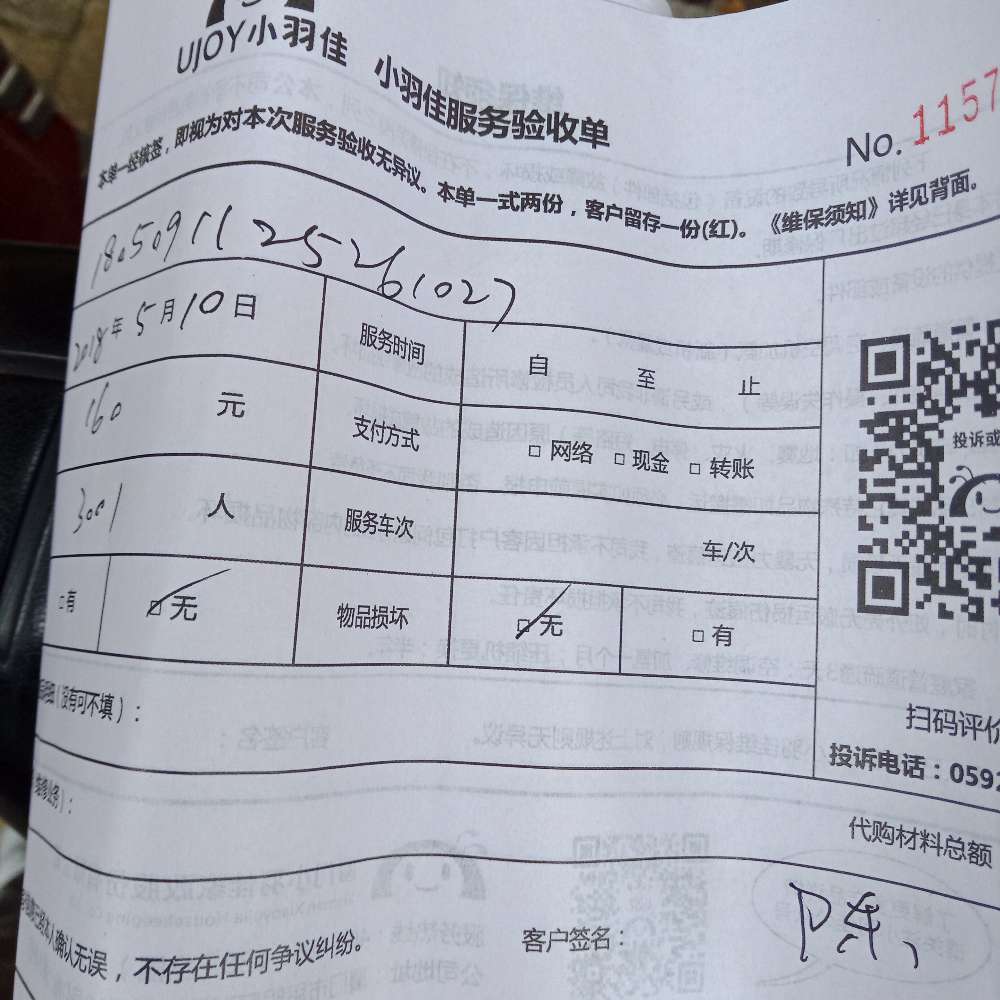 UJOY小羽佳 小羽佳服务验收单
No. 1157
本单一经核签，即视为对本次服务验收无异议。本单一式两份，客户留存一份(红)。《维保须知》详见背面。
1805091125261027
2018年5月10日 服务时间 自 至 止
160 元 支付方式 □ 网络 □ 现金 □ 转账
3001 人 服务车次 车/次
□有 □无 物品损坏 □无 □有
（没有可不填）：
扫码评价
投诉电话：0592
维修业务）：
代购材料总额
本人确认无误，不存在任何争议纠纷。
客户签名：
投诉或